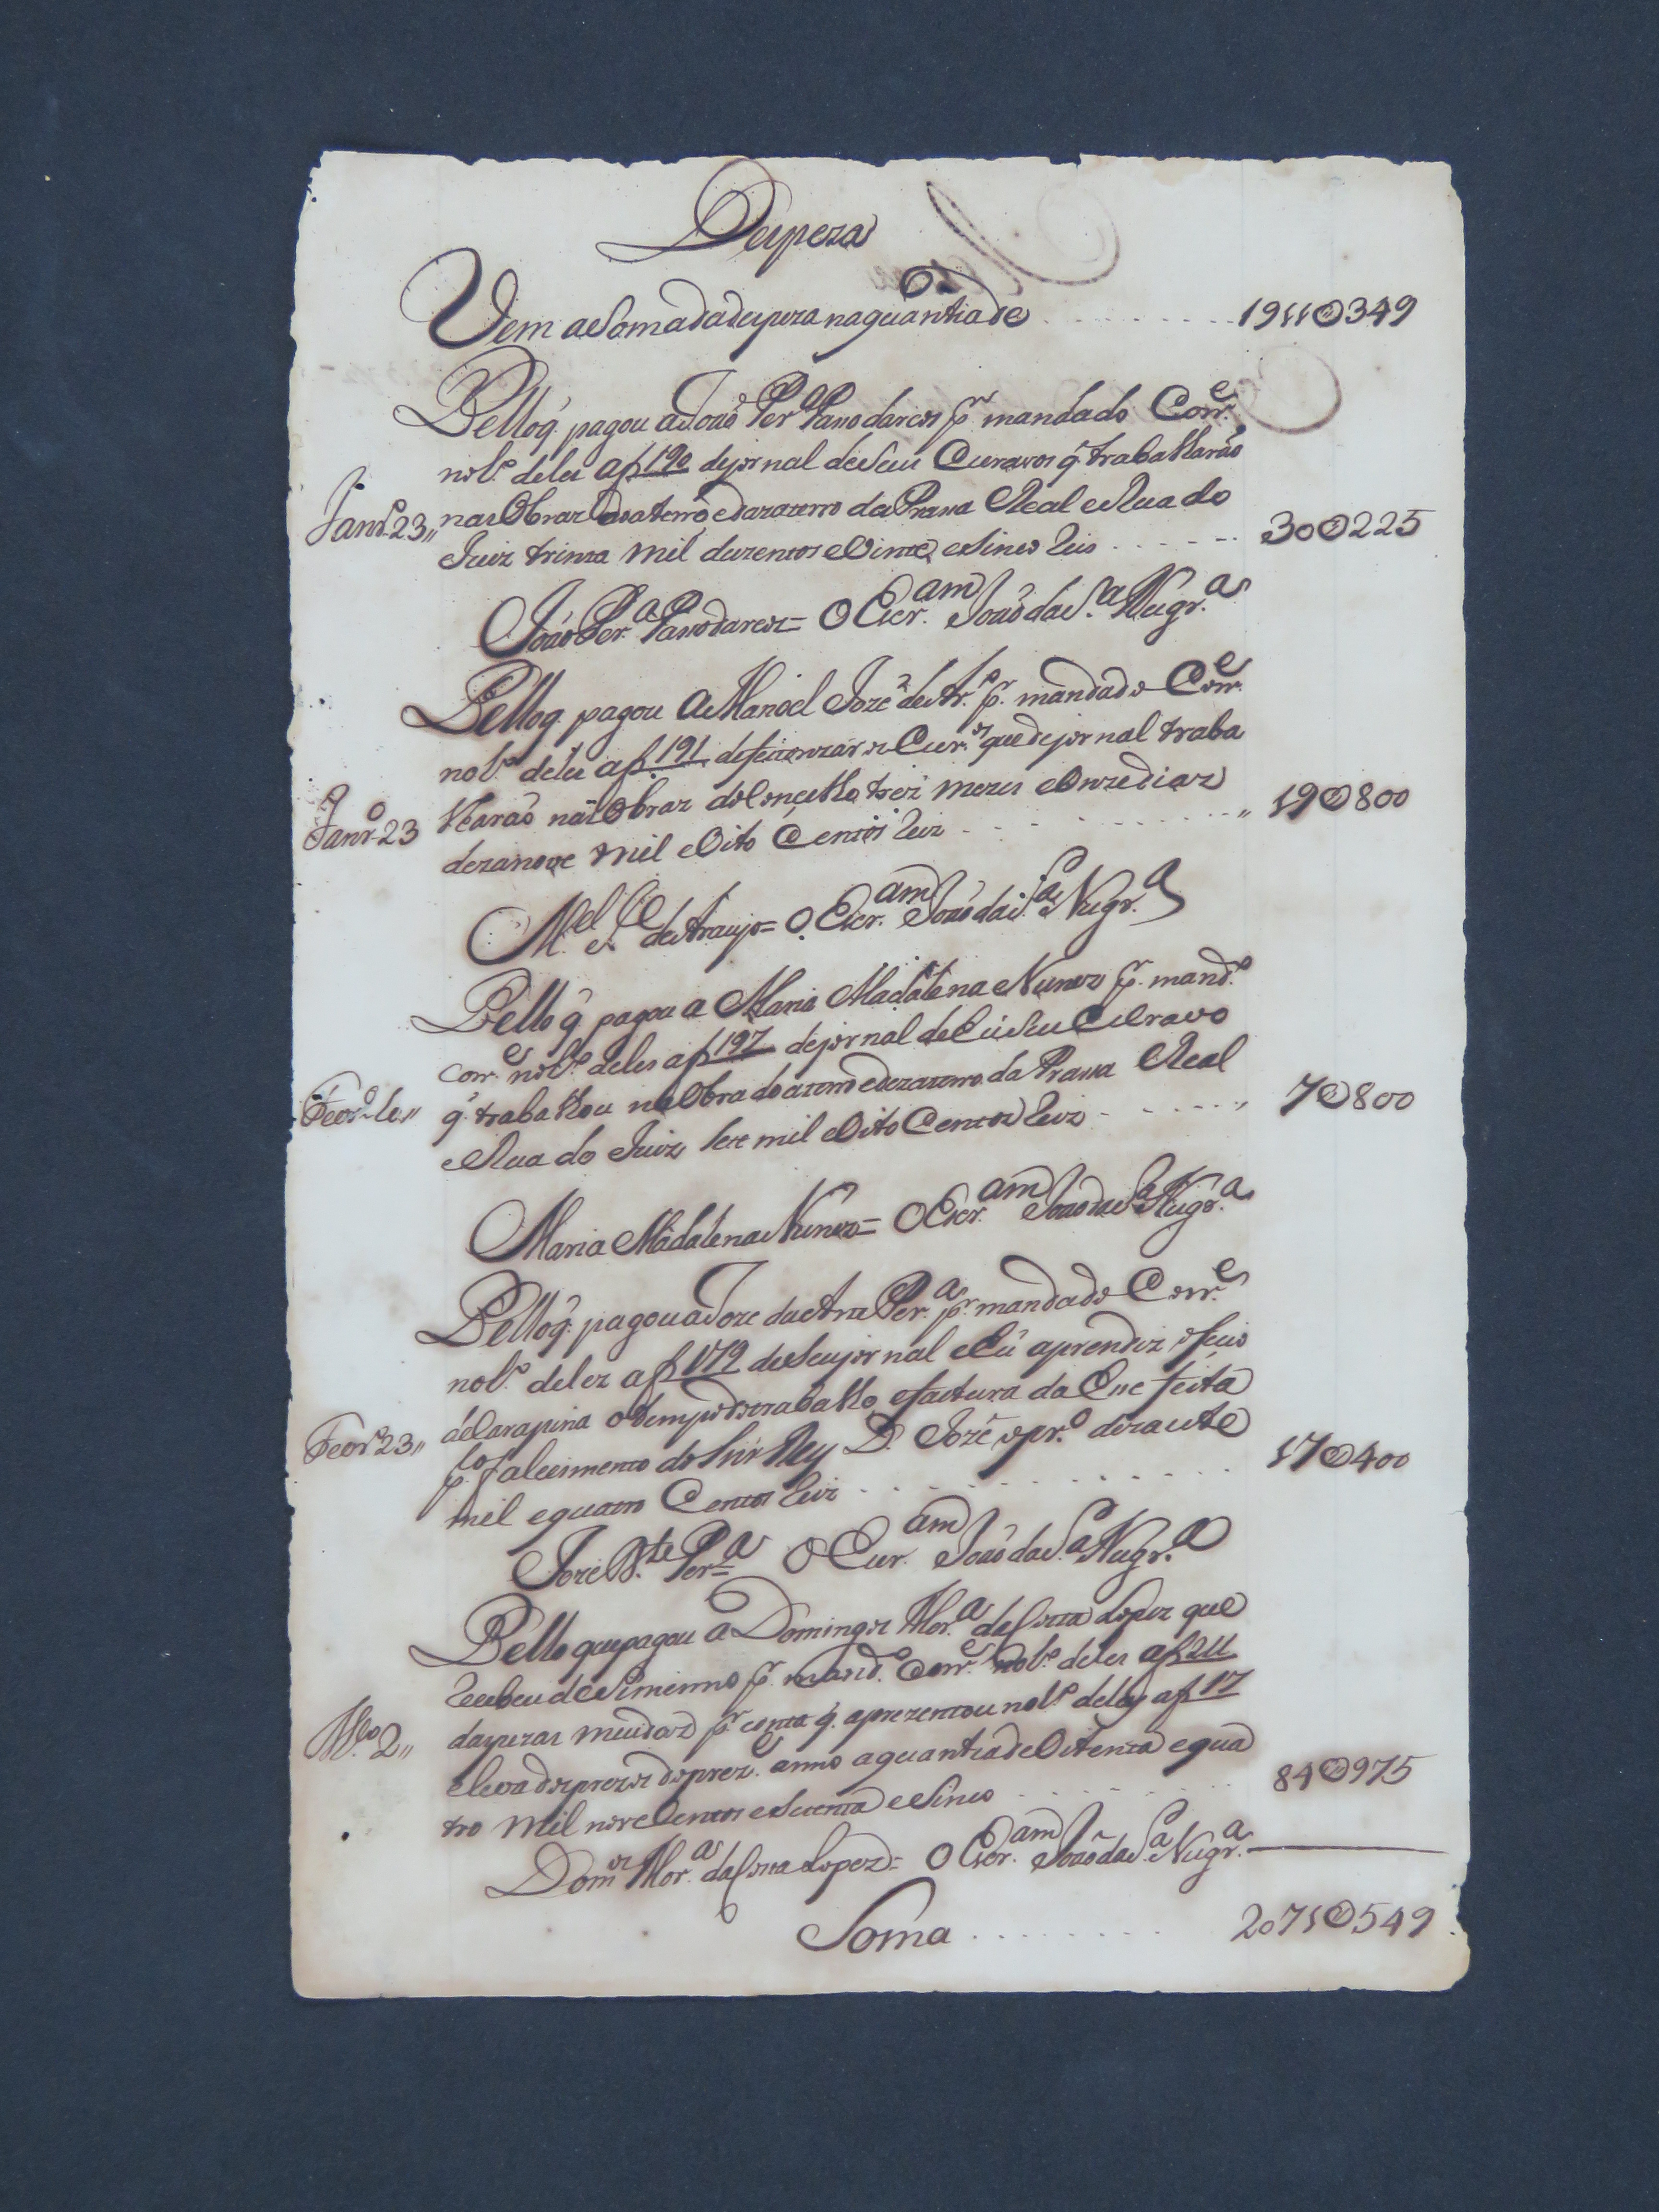 Despeza
Vem a Soma da despeza na quantia de 1911@349
Pello q̃ pagou a João Perª Passo darcos pr mandado Corre
no Lº deles a f 190 de jornal de seus Escravos q̃ trabalharão
Janrº 23,, nas Obras do aterro e dezaterro da Prassa Real e Rua do
Juiz trinta mil duzentos e Vinte e Sinco Reis 30@225
João Perª Passo darcos = O Escram João da Sª Nugrª
Pello q pagou a Manoel Joze de Arº pr mandado Corre
no Lº deles a f. 191 de feitorizar os Escros que de jornal traba
Janrº 23 lharão nas Obras do Conçelho trez mezes e Onze dias
dezanove mil e Oito Centos Reis 19@800
Mel Je de Araujo = O Escram João da Sª Nugrª
Pello q̃ pagou a Maria Madalena Nunes pr mandº
corre no Lº deles a f 197 de jornal de hũ seu Escravo
Feverº 10,, q̃ trabalhou na Obra do aterro e dezaterro da Prassa Real
e Rua do Juiz Sete mil e Oito Centos Reis 7@800
Maria Madalena Nunes = O Escram João da Sª Nugrª
Pello q̃ pagou a Joze Perª pr mandado Corre
no Lº deles a f 179 de seu jornal e hũ aprendiz ofiçio
Feverº 23,, de Carapina o tempo de trabalho e factura da Eça feita
pº falecimento do Snr Rey D. Jozé o prº dezacete
mil e quatro Centos Reis 17@400
Joze Perª O Escram João da Sª Nugrª
Pello que pagou a Domingos Morª da Costa Lopes que
Recebeu de pr mandº Corre no Lº deles a f 211
Mço 2,, daspezas meudas pr conta q̃ aprezentou no Lº delas a f 17
e leva dos prezos do prezte anno a quantia de Oitenta e qua
tro mil nove Centos e Setenta e Sinco 84@975
Domos Morª da Costa Lopes = O Escram João da Sª Nugrª
Soma 2071@549